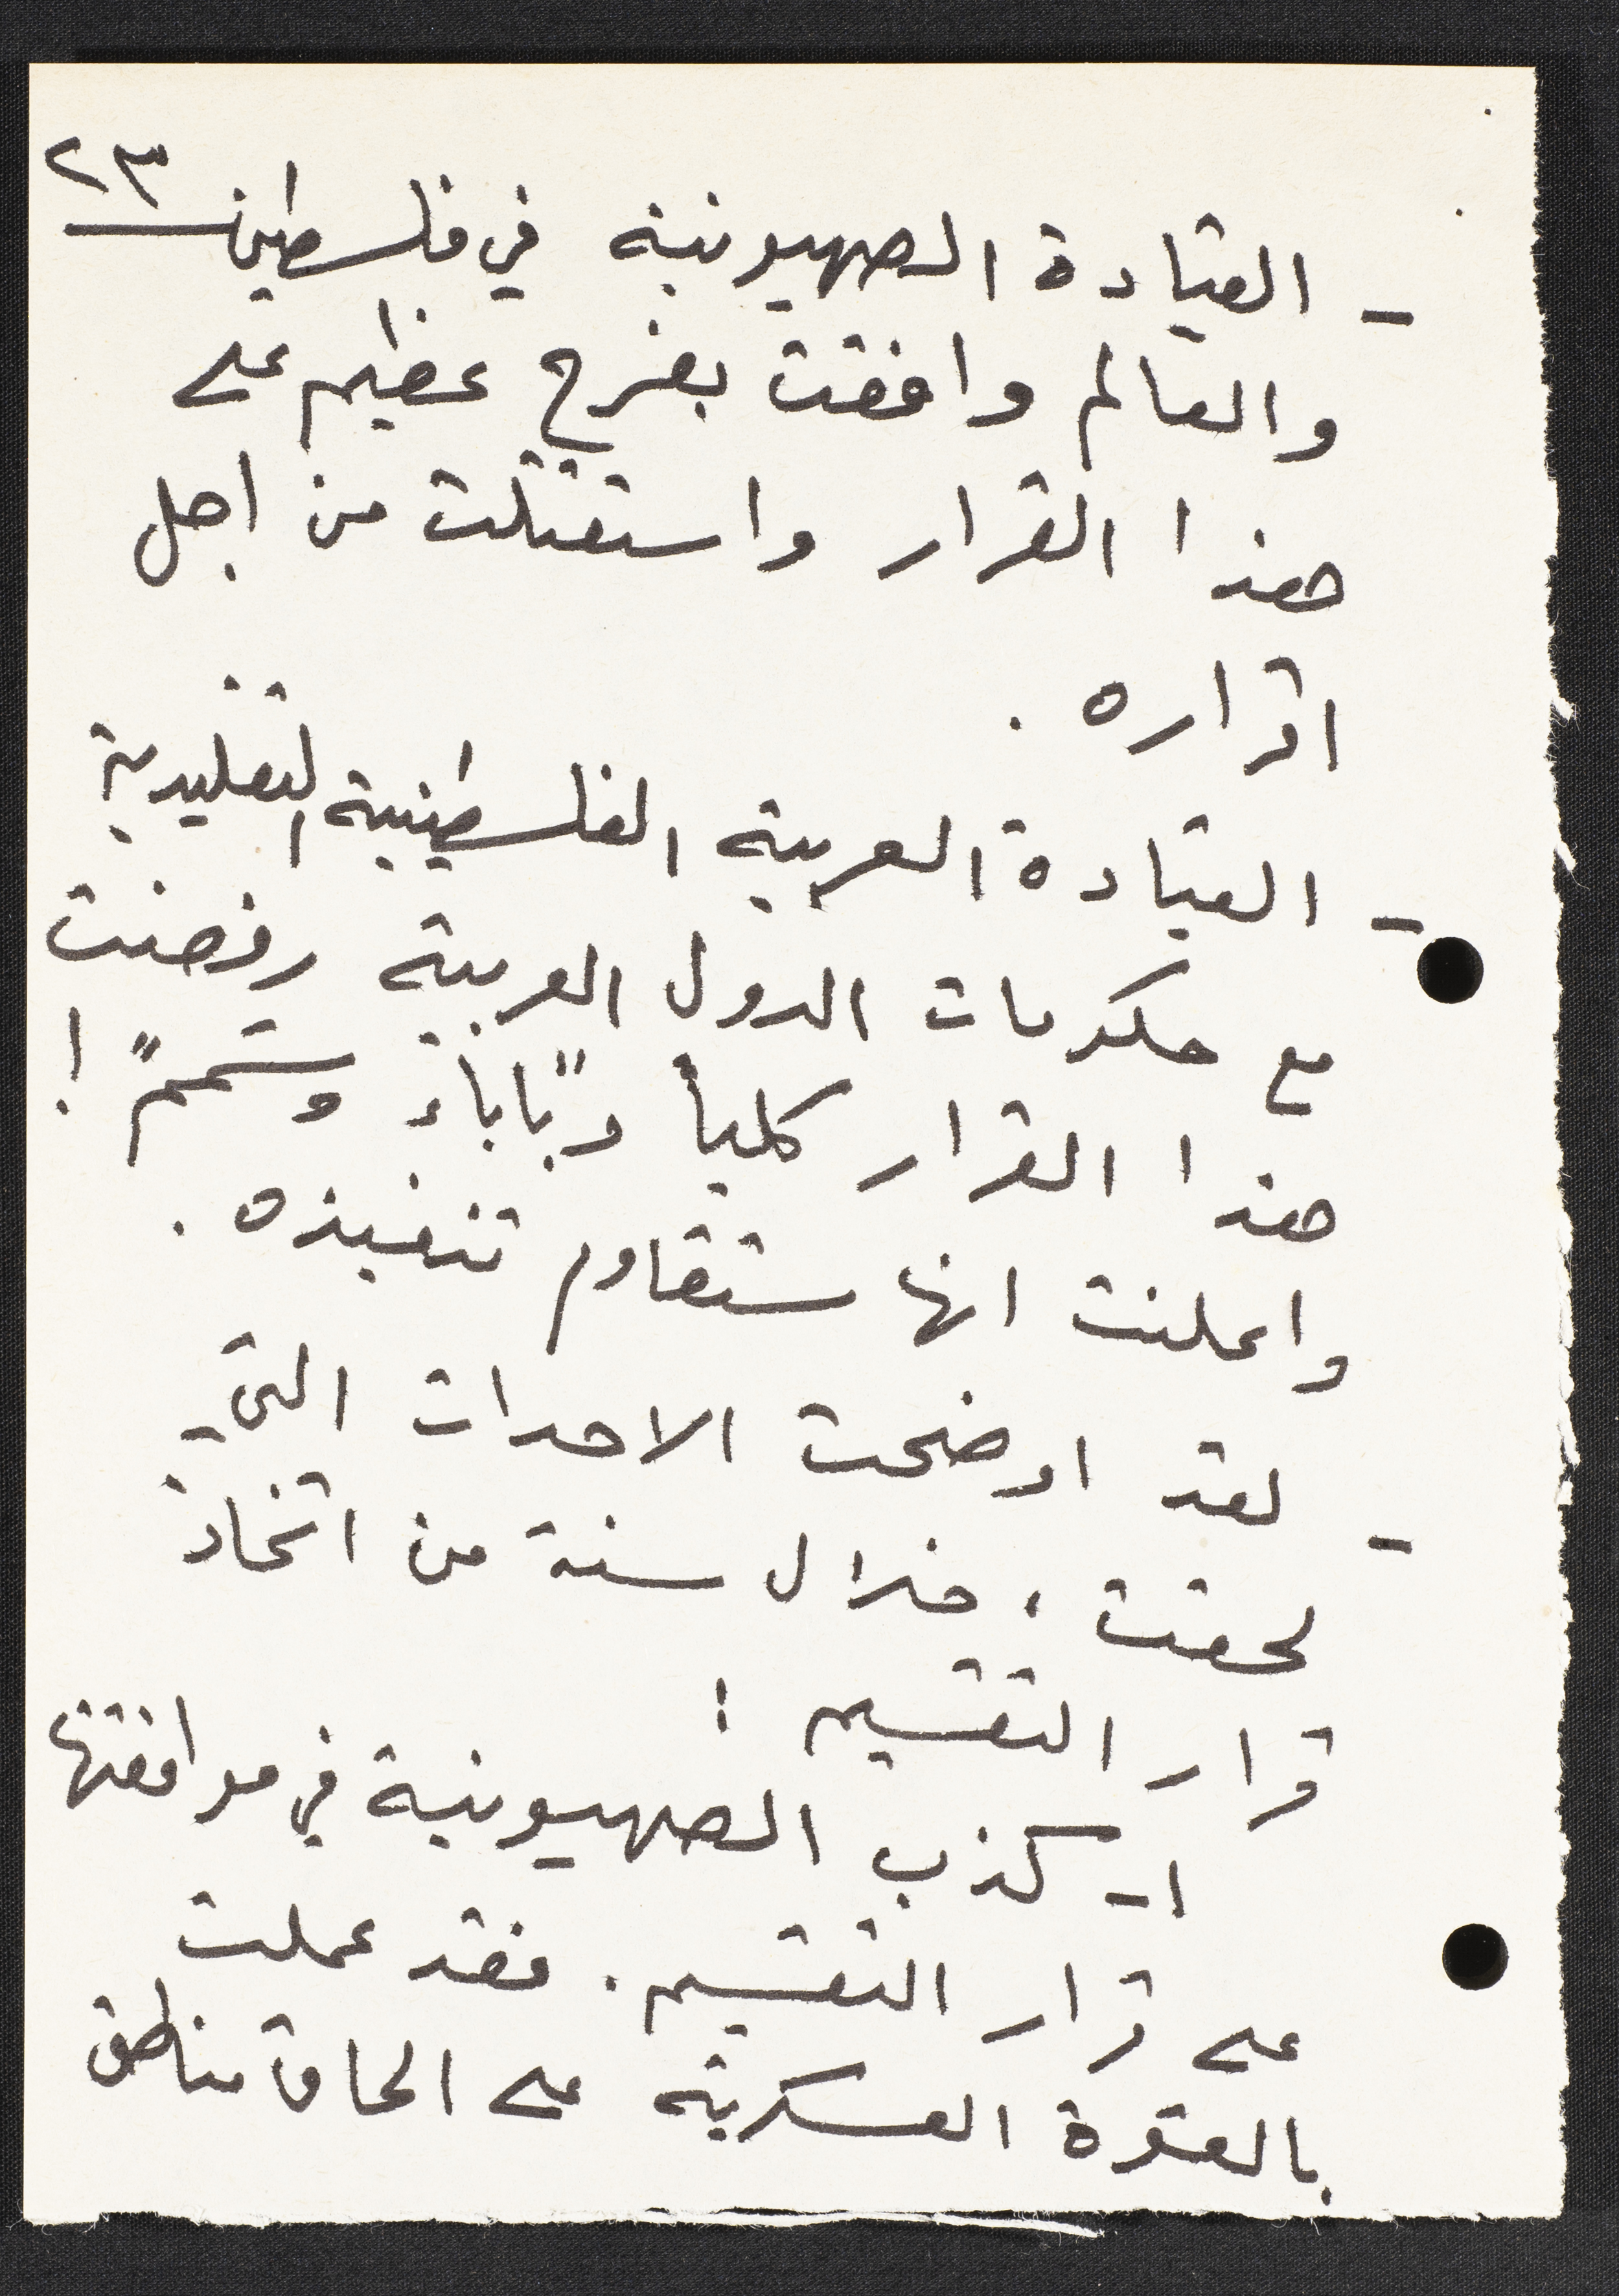 ٢٣
- القيادة الصهيونية في فلسطين
والعالم وافقت بفرح عظيم على
هذا القرار واستقتلت من اجل
اقراره .
- القيادة العربية الفلسطينية التقليدية
مع حكومات الدول العربية رفضت
هذا القرار كلياً و"باباء وشمم" !
واعلنت انها ستقاوم تنفيذه .
- لقد اوضحت الاحداث التي
لحقت ، خلال سنة من اتخاذ
قرار التقسيم :
١- كذب الصهيونية في موافقتها
على قرار التقسيم . فقد عملت
بالقوة العسكرية على الحاق مناطق